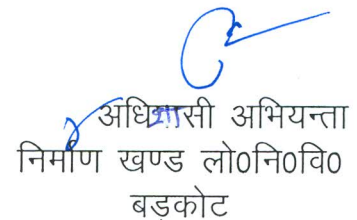 अधिशासी अभियन्ता
निर्माण खण्ड लो0नि0वि0
बड़कोट